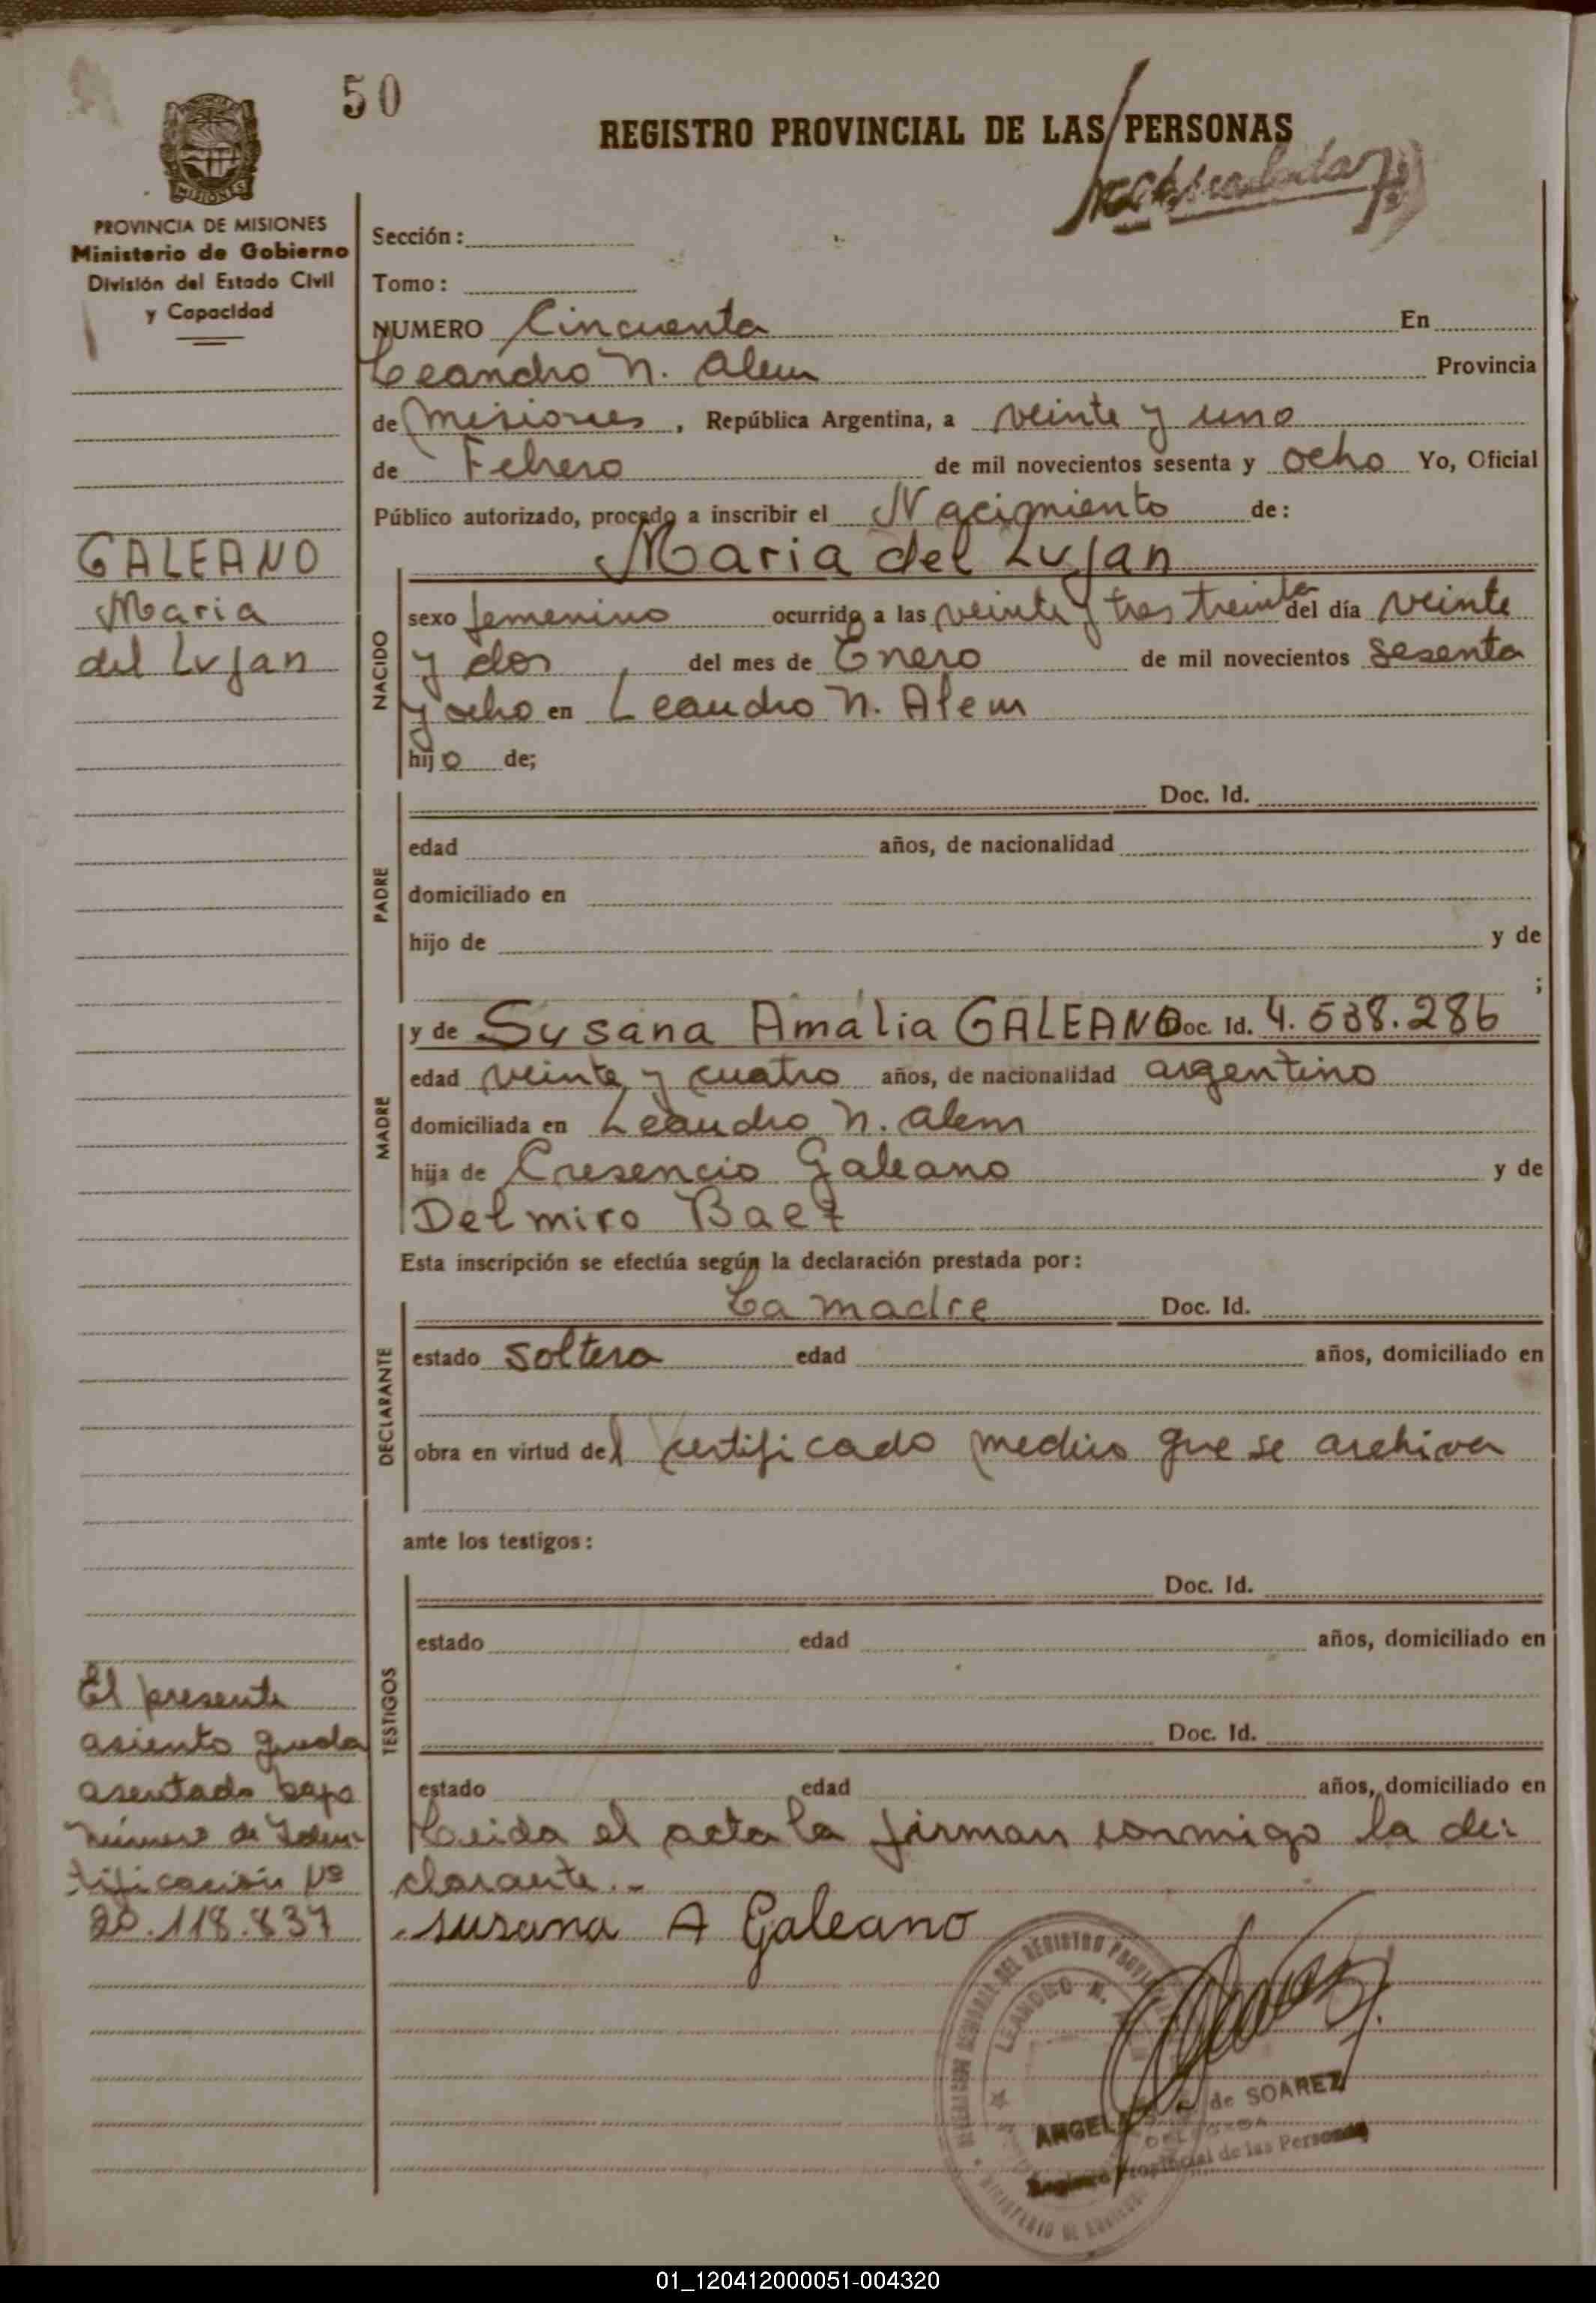 50
REGISTRO PROVINCIAL DE LAS PERSONAS
MISIONES
PROVINCIA DE MISIONES
Ministerio de Gobierno
División del Estado Civil
y Capacidad
Sección:
Tomo:
NUMERO Cincuenta En
Leandro N. Alem Provincia
de Misiones, República Argentina, a veinte y uno
de Febrero de mil novecientos sesenta y ocho Yo, Oficial
Público autorizado, procedo a inscribir el Nacimiento de:
GALEANO
Maria
del Lujan
Maria del Lujan
NACIDO
sexo femenino ocurrido a las veinte y tres treinta del día veinte
y dos del mes de Enero de mil novecientos sesenta
y ocho en Leandro N. Alem
hijo de;
PADRE
Doc. Id.
edad años, de nacionalidad
domiciliado en
hijo de y de
;
MADRE
y de Susana Amalia GALEANO Doc. Id. 4.538.286
edad veinte y cuatro años, de nacionalidad argentino
domiciliada en Leandro N. Alem
hija de Cresencio Galeano y de
Delmiro Baez
Esta inscripción se efectúa según la declaración prestada por:
DECLARANTE
La madre Doc. Id.
estado soltera edad años, domiciliado en
obra en virtud del certificado medico que se archiva
ante los testigos:
TESTIGOS
Doc. Id.
estado edad años, domiciliado en
Doc. Id.
estado edad años, domiciliado en
Leida el acta la firman conmigo la de:
clarante.-
Susana A Galeano
El presente
asiento queda
asentado bajo
Número de Iden-
tificación Nº
20.118.837
LEANDRO N.
ANGELA de SOAREZ
DELEGADA
Registro Provincial de las Personas
01_120412000051-004320